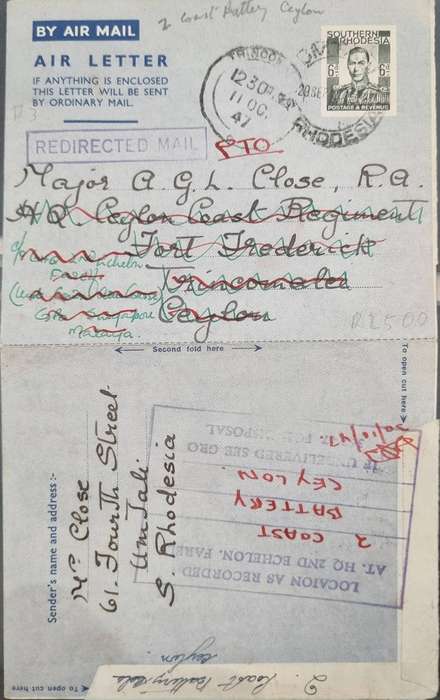 2 Coast Battery Ceylon
BY AIR MAIL
AIR LETTER
IF ANYTHING IS ENCLOSED
THIS LETTER WILL BE SENT
BY ORDINARY MAIL.
SOUTHERN
RHODESIA
6D 6D
POSTAGE & REVENUE
1230 PM
11 OC
47
RHODESIA
REDIRECTED MAIL
PTO
Major A. G. L. Close, R.A.
HQ Ceylon Coast Regiment
Fort Frederick
Trincomalee
Ceylon
Echelon
Farelf
Singapore
Malaya.
R2500
Second fold here
To open cut here
Sender's name and address :-
Mrs Close
61. Fourth Street
Umtali
S. Rhodesia
LOCAION AS RECORDED
AT. HQ 2ND ECHELON. FARELF
2 COAST
BATTERY
CEYLON
IF UNDELIVERED SEE GRO
DISPOSAL
20/10/47
To open cut here
2. Coast Battery
Ceylon.